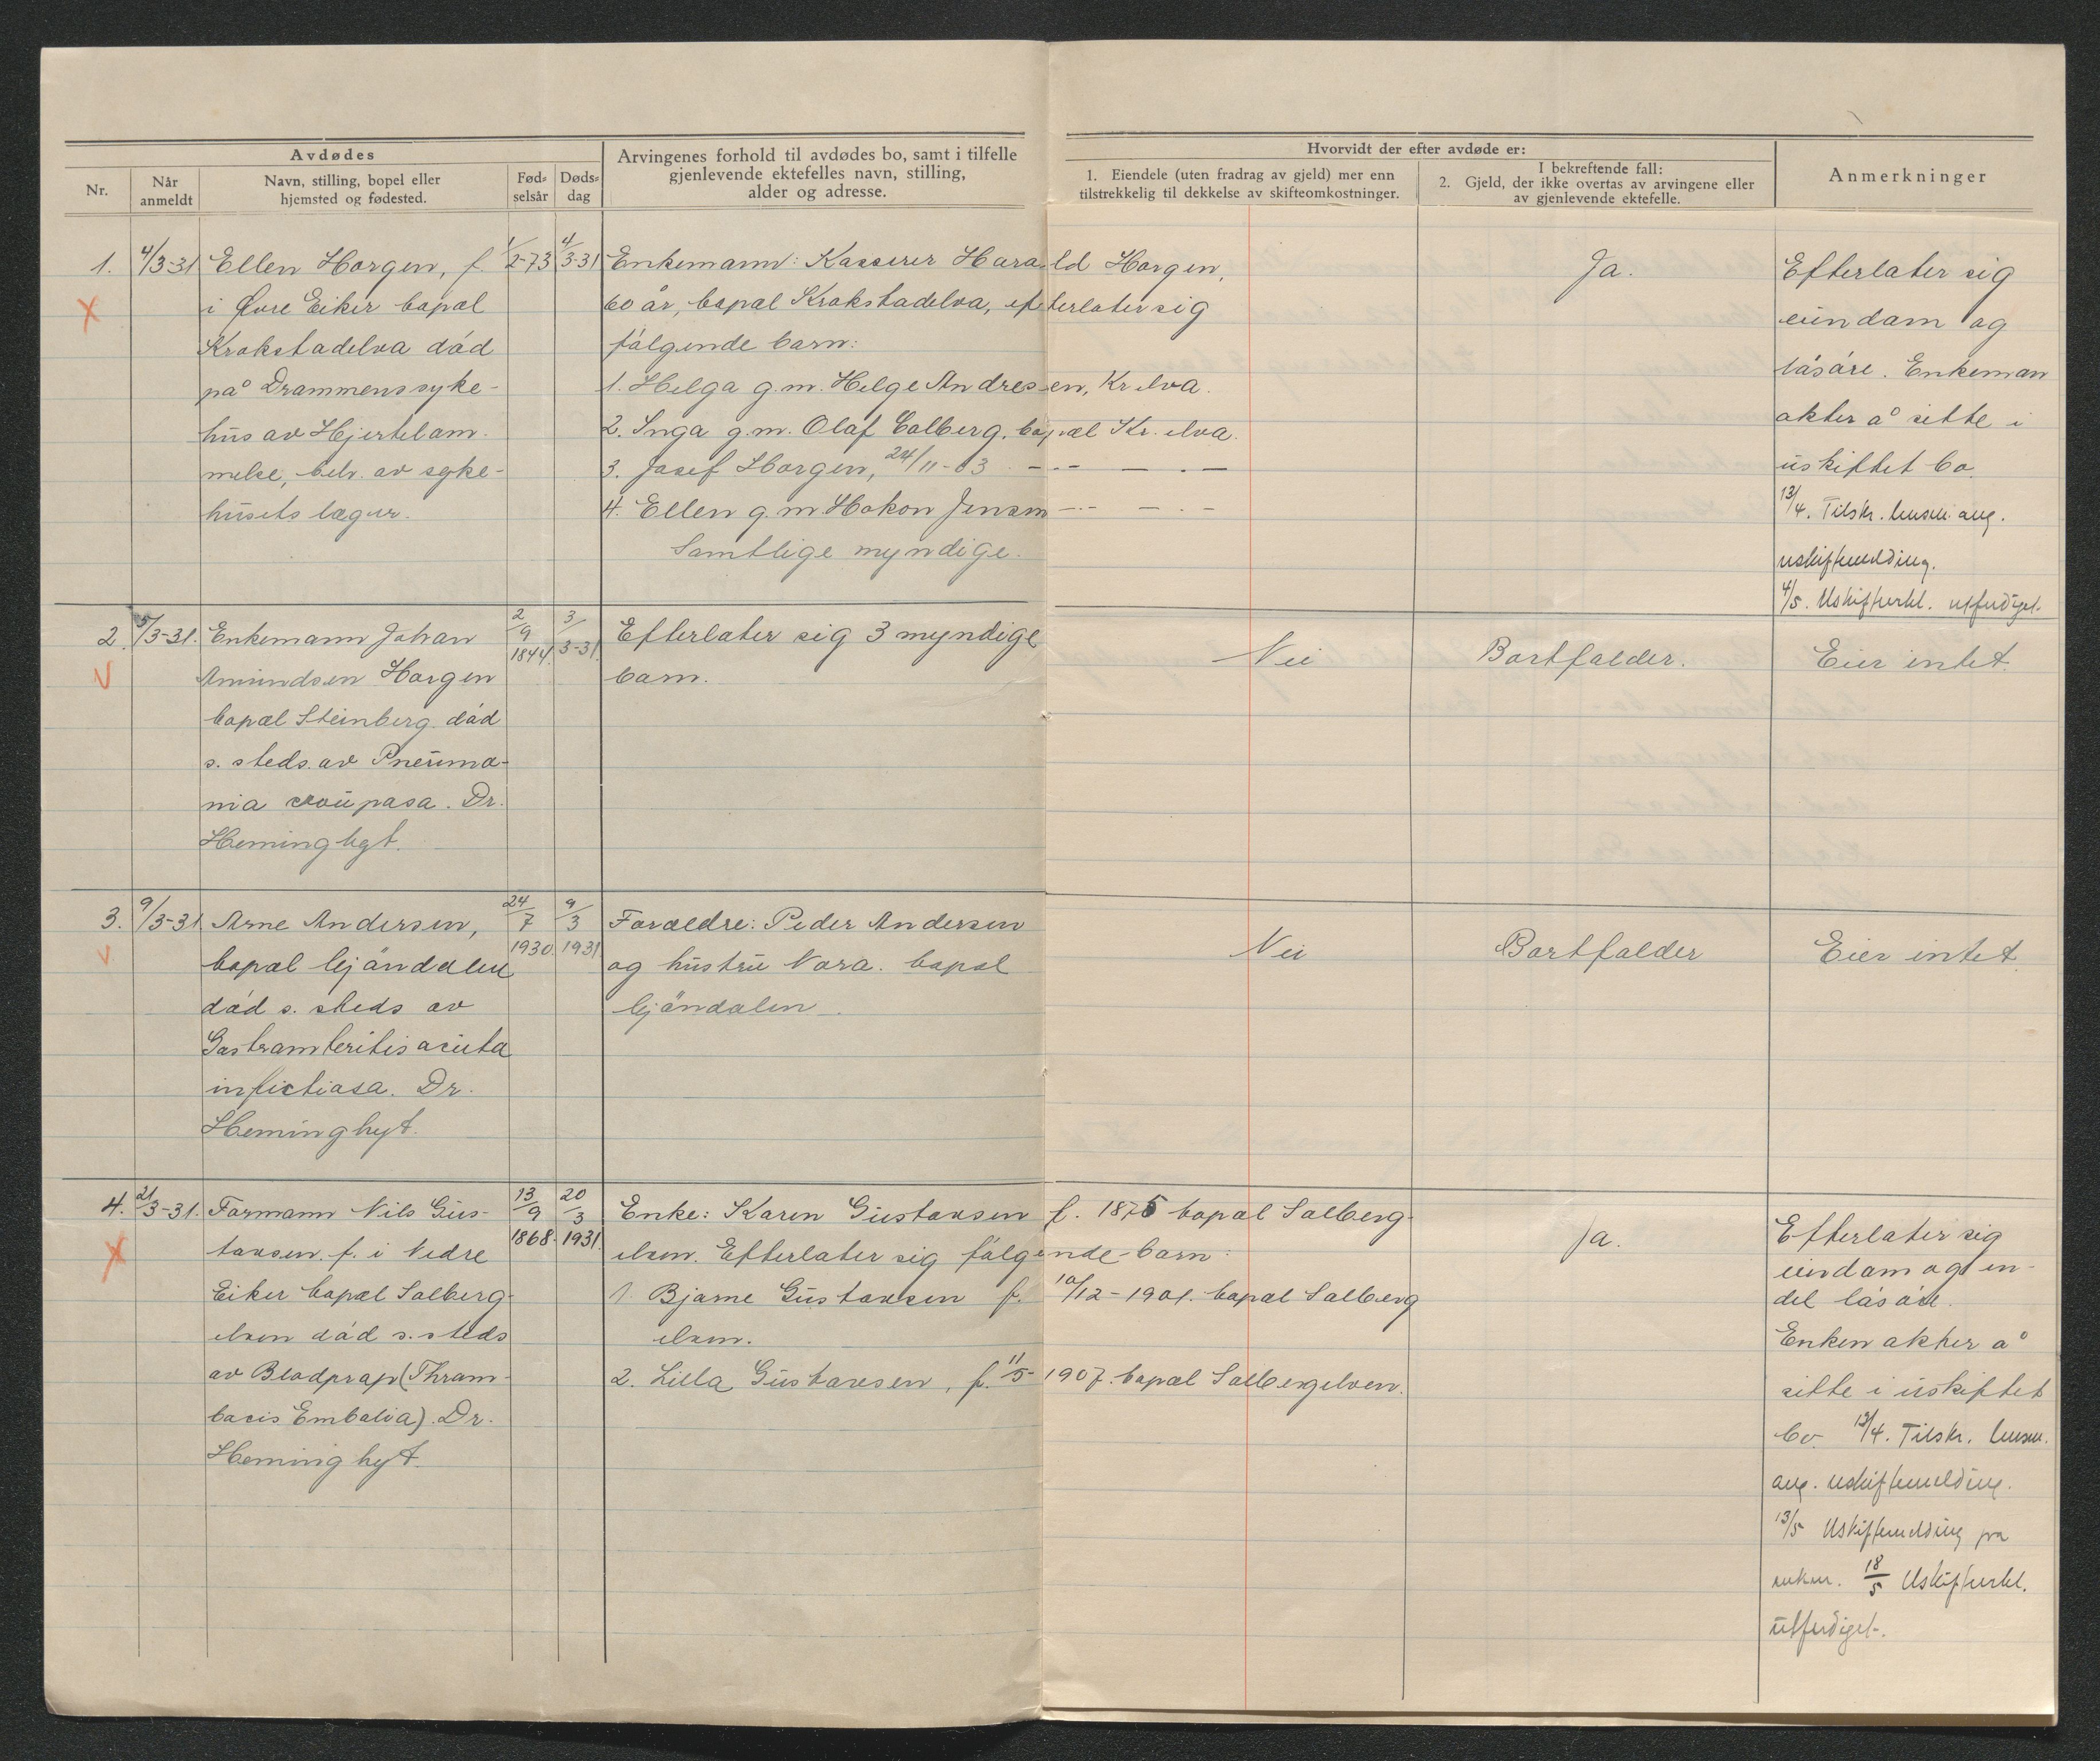 Avdødes
Arvingenes forhold til avdødes bo, samt i tilfelle
gjenlevende ektefelles navn, stilling,
alder og adresse.
Hvorvidt der efter avdøde er:
Nr.
Når
anmeldt
Navn, stilling, bopel eller
hjemsted og fødested.
Fød-
selsår
Døds-
dag
1. Eiendele (uten fradrag av gjeld) mer enn
tilstrekkelig til dekkelse av skifteomkostninger.
I bekreftende fall:
2. Gjeld, der ikke overtas av arvingene eller
av gjenlevende ektefelle.
Anmerkninger
1. 4/3-31 Ellen Horgen, f. 1/2-73 4/3-31
i Øvre Eiker bopæl
Krokstadelva død
på Drammens syke-
hus av Hjertelam-
melse, beh. av syke-
husets læger.
Enkemann: Kasserer Harald Horgen,
60 år, bopæl Krokstadelva, efterlater sig
følgende barn:
1. Helga g.m. Helge Andresen, Kr.elva.
2. Inga g.m. Olaf Colberg, bopæl Kr. elva.
3. Josef Horgen, 24/11-03 — — —
4. Ellen g.m. Hakon Jensen — — —
Samtlige myndige.
Ja.
Efterlater sig
eiendom og
løsøre. Enkeman
akter å sitte i
uskiftet bo.
13/4. Tilskr. lensm. ang.
uskiftemelding.
4/5. Uskifteerkl. utferdiget.
2. 5/3-31. Enkemann Johan 2/9 1844. 3/3-31.
Amundsen Horgen
bopæl Steinberg død
s. steds. av Pneumo-
nia croupøsa. Dr.
Heminghyt.
Efterlater sig 3 myndige
barn.
Nei
Bortfalder.
Eier intet.
3. 9/3-31. Arne Andersen, 24/7 1930. 9/3 1931
bopæl Mjøndalen
død s. steds av
Gastroenteritis acuta
infectiosa. Dr.
Heminghyt.
Foreldre: Peder Andersen
og hustru Nora. bopæl
Mjøndalen.
Nei
Bortfalder
Eier intet.
4. 21/3-31. Formann Nils Gus- 13/9 1868. 20/3 1931.
tavsen. f. i Nedre
Eiker bopæl Solberg-
elven død s. steds
av Blodprop (Throm-
bosis Embolia). Dr.
Heminghyt.
Enke: Karen Gustavsen f. 1875 bopæl Solberg-
elven. Efterlater sig følgende barn:
1. Bjarne Gustavsen f. 10/12-1901. bopæl Solberg
elven.
2. Lilla Gustavsen, f. 11/5 1907. bopæl Solbergelven.
Ja.
Efterlater sig
eiendom og en-
del løsøre.
Enken akter å
sitte i uskiftet
bo. 13/4. Tilskr. lensm.
ang. uskiftemelding.
13/5 Uskiftemelding fra
enken. 18/5 Uskifteerkl.
utferdiget.